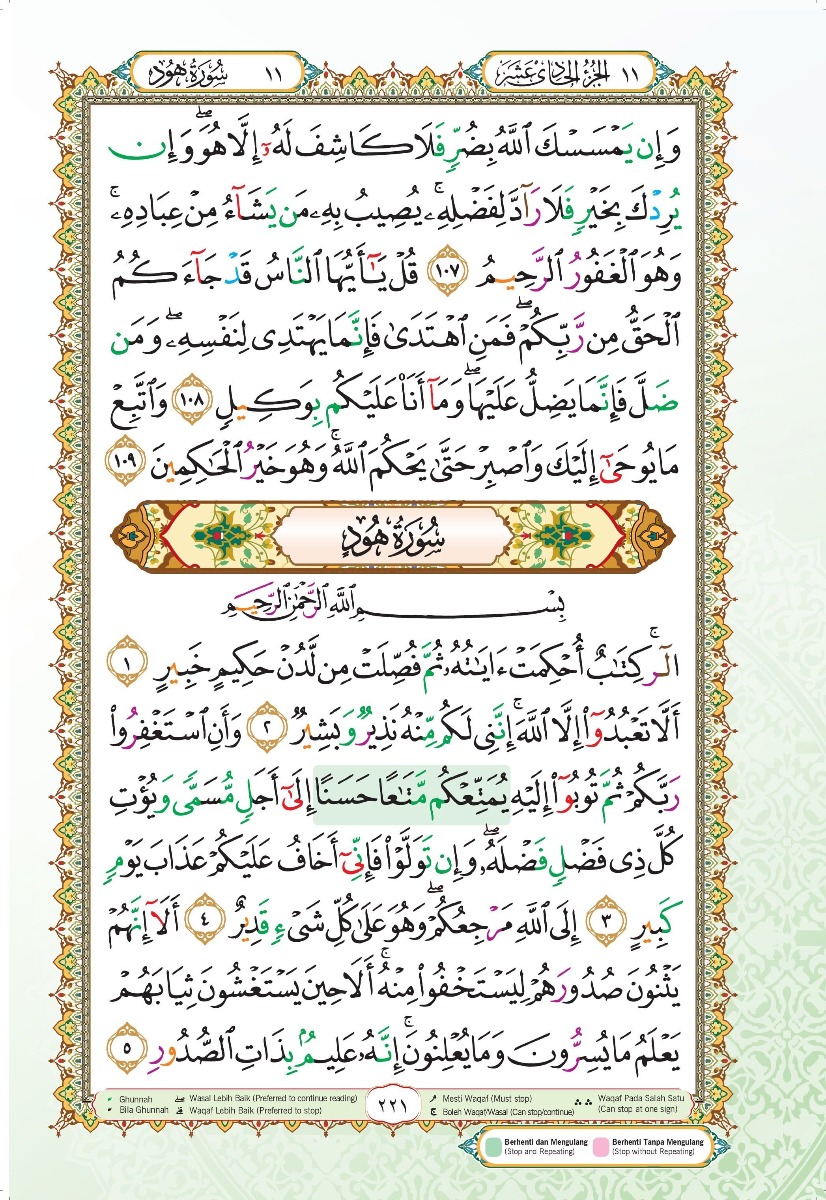 ١١ الجزء الحادي عشر
١١ سورة هود
وَإِن يَمۡسَسۡكَ ٱللَّهُ بِضُرّٖ فَلَا كَاشِفَ لَهُۥٓ إِلَّا هُوَۖ وَإِن
يُرِدۡكَ بِخَيۡرٖ فَلَا رَآدَّ لِفَضۡلِهِۦۚ يُصِيبُ بِهِۦ مَن يَشَآءُ مِنۡ عِبَادِهِۦۚ
وَهُوَ ٱلۡغَفُورُ ٱلرَّحِيمُ ١٠٧ قُلۡ يَٰٓأَيُّهَا ٱلنَّاسُ قَدۡ جَآءَكُمُ
ٱلۡحَقُّ مِن رَّبِّكُمۡۖ فَمَنِ ٱهۡتَدَىٰ فَإِنَّمَا يَهۡتَدِي لِنَفۡسِهِۦۖ وَمَن
ضَلَّ فَإِنَّمَا يَضِلُّ عَلَيۡهَاۖ وَمَآ أَنَا۠ عَلَيۡكُم بِوَكِيلٖ ١٠٨ وَٱتَّبِعۡ
مَا يُوحَىٰٓ إِلَيۡكَ وَٱصۡبِرۡ حَتَّىٰ يَحۡكُمَ ٱللَّهُۚ وَهُوَ خَيۡرُ ٱلۡحَٰكِمِينَ ١٠٩
سُورَةُ هُودٍ
بِسۡمِ ٱللَّهِ ٱلرَّحۡمَٰنِ ٱلرَّحِيمِ
الٓرۚ كِتَٰبٌ أُحۡكِمَتۡ ءَايَٰتُهُۥ ثُمَّ فُصِّلَتۡ مِن لَّدُنۡ حَكِيمٍ خَبِيرٍ ١
أَلَّا تَعۡبُدُوٓاْ إِلَّا ٱللَّهَۚ إِنَّنِي لَكُم مِّنۡهُ نَذِيرٞ وَبَشِيرٞ ٢ وَأَنِ ٱسۡتَغۡفِرُواْ
رَبَّكُمۡ ثُمَّ تُوبُوٓاْ إِلَيۡهِ يُمَتِّعۡكُم مَّتَٰعًا حَسَنًا إِلَىٰٓ أَجَلٖ مُّسَمّٗى وَيُؤۡتِ
كُلَّ ذِي فَضۡلٖ فَضۡلَهُۥۖ وَإِن تَوَلَّوۡاْ فَإِنِّيٓ أَخَافُ عَلَيۡكُمۡ عَذَابَ يَوۡمٖ
كَبِيرٍ ٣ إِلَى ٱللَّهِ مَرۡجِعُكُمۡۖ وَهُوَ عَلَىٰ كُلِّ شَيۡءٖ قَدِيرٌ ٤ أَلَآ إِنَّهُمۡ
يَثۡنُونَ صُدُورَهُمۡ لِيَسۡتَخۡفُواْ مِنۡهُۚ أَلَا حِينَ يَسۡتَغۡشُونَ ثِيَابَهُمۡ
يَعۡلَمُ مَا يُسِرُّونَ وَمَا يُعۡلِنُونَۚ إِنَّهُۥ عَلِيمُۢ بِذَاتِ ٱلصُّدُورِ ٥
Ghunnah
Bila Ghunnah
ۖ Wasal Lebih Baik (Preferred to continue reading)
ۗ Waqaf Lebih Baik (Preferred to stop)
٢٢١
ۘ Mesti Waqaf (Must stop)
ۚ Boleh Waqaf/Wasal (Can stop/continue)
ۛ ۛ Waqaf Pada Salah Satu
(Can stop at one sign)
Berhenti dan Mengulang
(Stop and Repeating)
Berhenti Tanpa Mengulang
(Stop without Repeating)